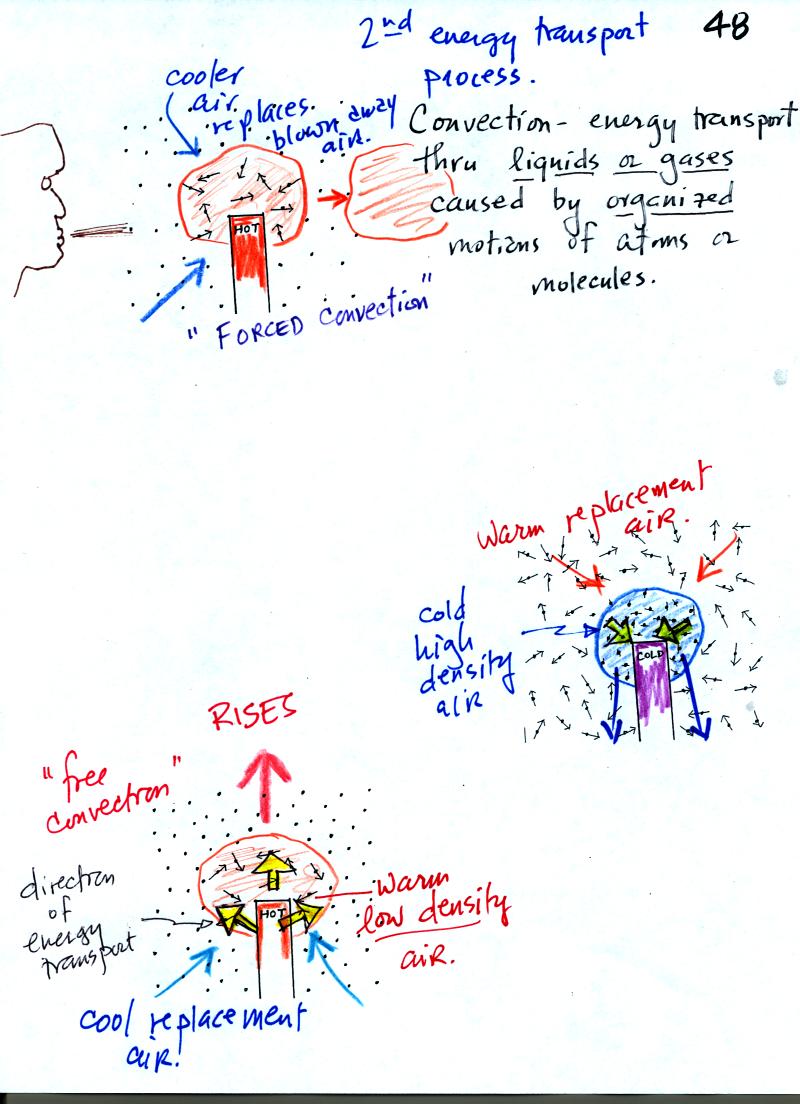 2nd energy transport
process.
48
Convection - energy transport
thru liquids or gases
caused by organized
motions of atoms or
molecules.
cooler
air
replaces
blown away
air.
HOT
"FORCED convection"
warm replacement
air.
cold
high
density
air
COLD
RISES
"free
convection"
direction
of
energy
transport
HOT
warm
low density
air.
cool replacement
air.